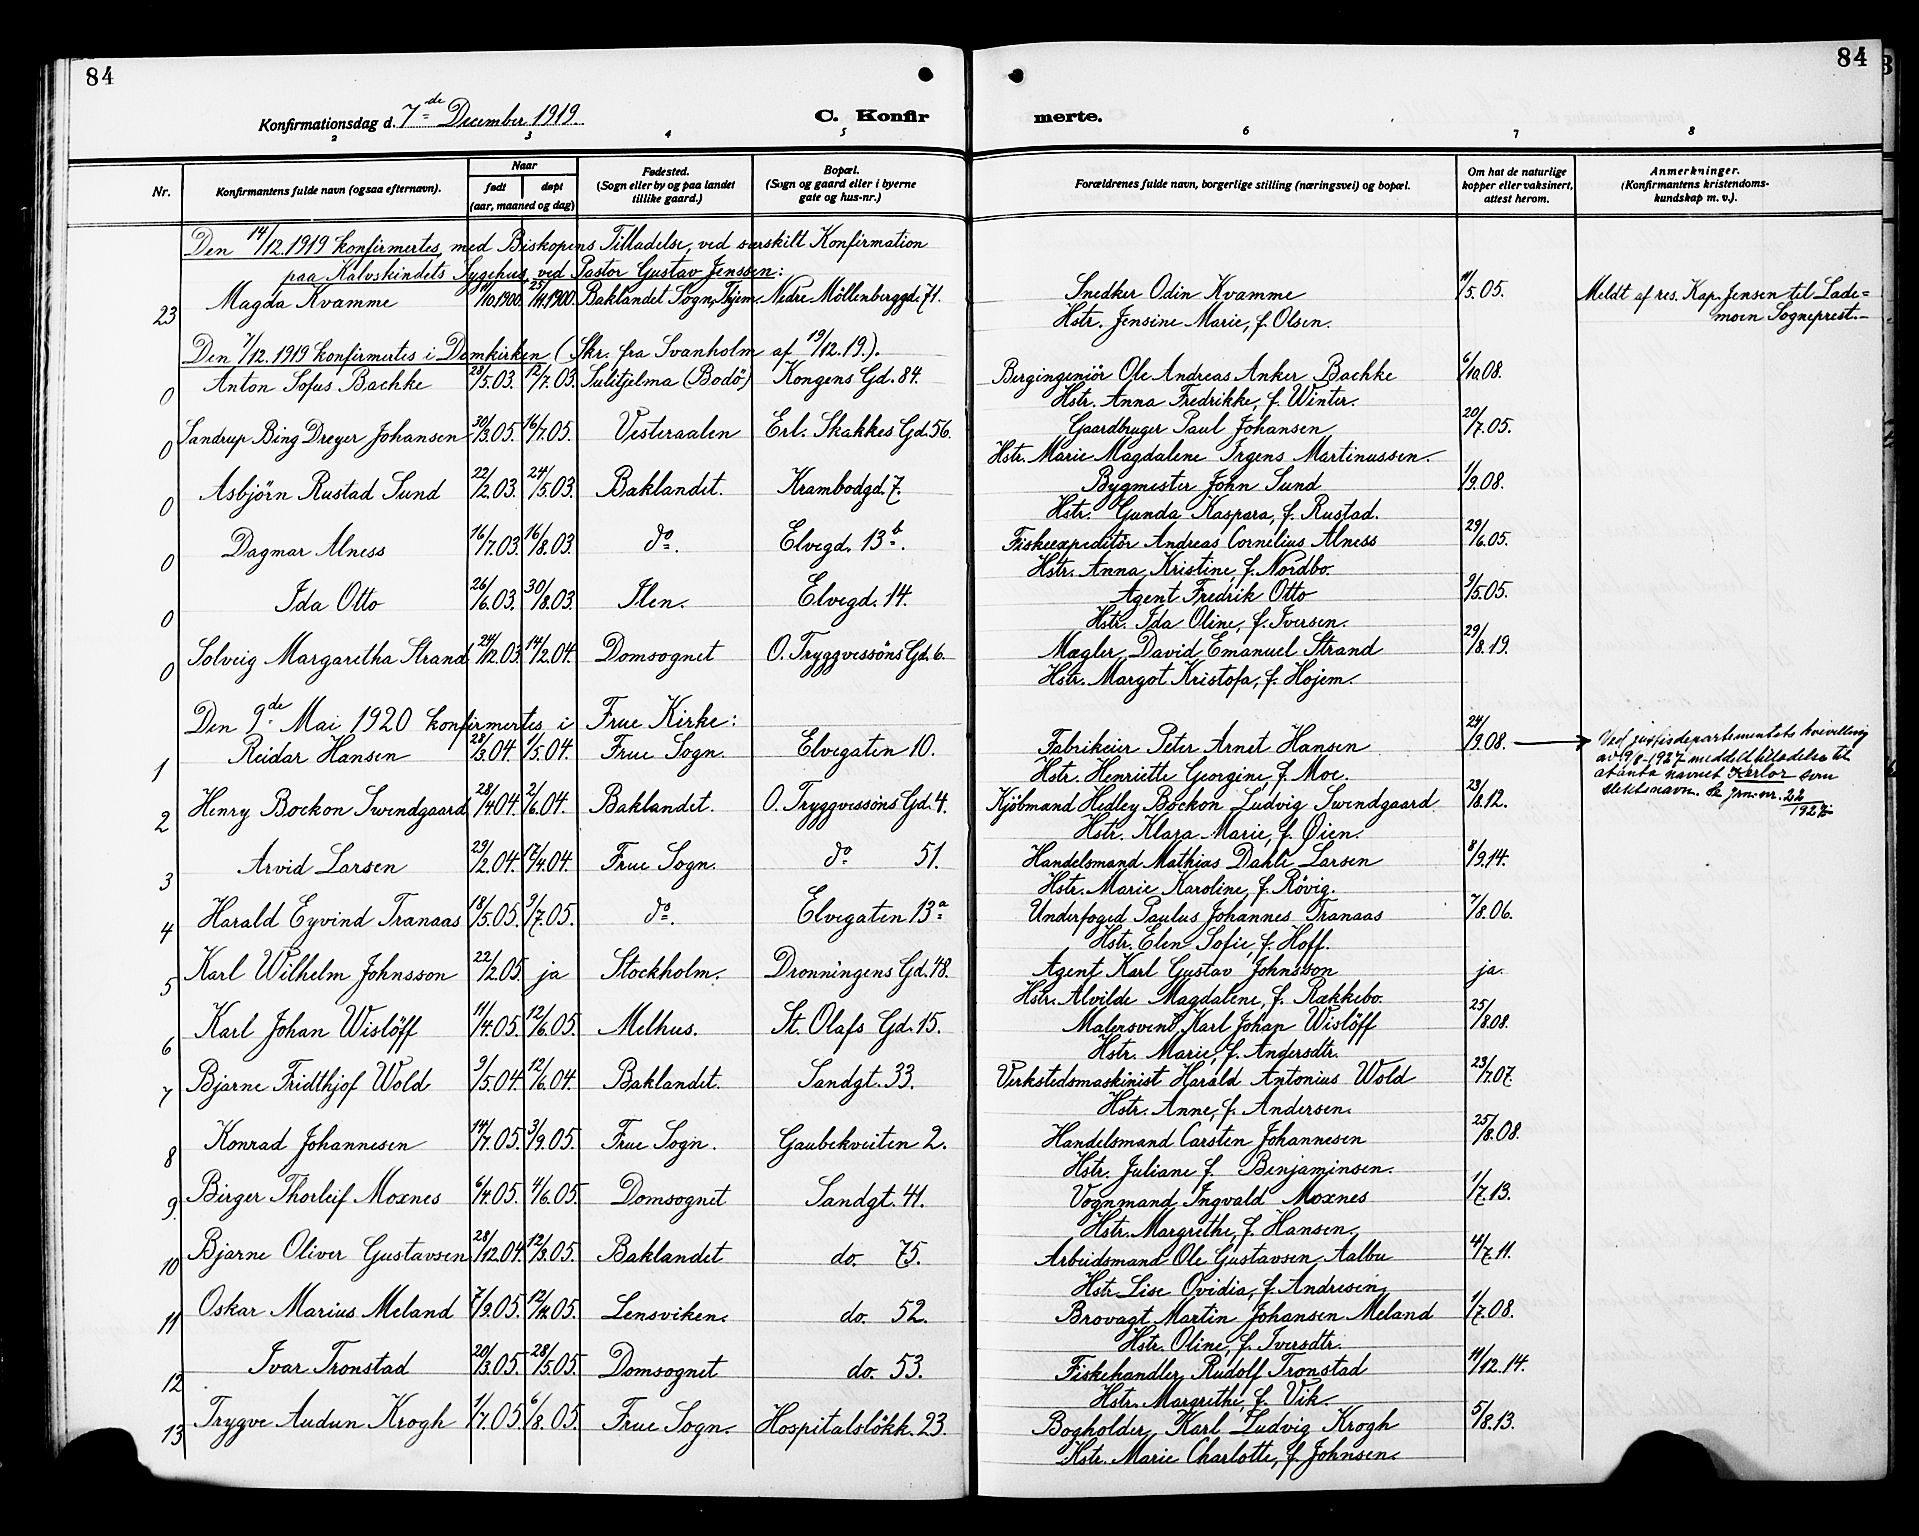 84
84
Konfirmationsdag d. 7de December 1919.
C. Konfir
merte.
2 3 4 5 6 7 8
Nr.
Konfirmantens fulde navn (ogsaa efternavn).
Naar
født døpt
(aar, maaned og dag)
Fødested.
(Sogn eller by og paa landet
tillike gaard.)
Bopæl.
(Sogn og gaard eller i byerne
gate og hus-nr.)
Forældrenes fulde navn, borgerlige stilling (næringsvei) og bopæl.
Om hat de naturlige
kopper eller vaksinert,
attest herom.
Anmerkninger.
(Konfirmantens kristendoms-
kundskap m. v.).
Den 14/12.1919 konfirmertes, med Biskopens Tilladelse, ved særskilt Konfirmation
paa Kalvskindets Sygehus, ved Pastor Gustav Jenssen:
23 Magda Kvamme /10.1900. 25/11.1900. Baklandet Sogn, Thjem. Nedre Möllenberggd. 71. Snedker Odin Kvamme 11/5.05. Meldt af res. Kap. Jensen til Lade=
Hstr. Jensine Marie, f. Olsen. moen Sogneprest.—
Den 7/12.1919 konfirmertes i Domkirken (Skr. fra Svanholm af 19/12.19.).
0 Anton Sofus Bachke 28/5.03. 12/7.03. Sulitjelma (Bodö) Kongens Gd. 84. Bergingeniör Ole Andreas Anker Bachke 6/10.08.
Hstr. Anna Fredrikke, f. Winter.
0 Sandrup Bing Dreyer Johansen 30/3.05. 16/7.05. Vesteraalen Erl. Skakkes Gd. 56. Gaardbruger Paul Johansen 20/7.05.
Hstr. Marie Magdalene Irgens Martinussen.
0 Asbjörn Rustad Sund 22/2.03. 24/5.03. Baklandet. Krambodgd. 7. Bygmester John Sund 1/9.08.
Hstr. Gunda Kaspara, f. Rustad.
0 Dagmar Alness 16/7.03. 16/8.03. do. Elvegd. 13b. Fiskeexpeditör Andreas Cornelius Alness 29/6.05.
Hstr. Anna Kristine, f. Nordbo.
0 Ida Otto 26/6.03. 30/8.03. Ilen. Elvegd. 14. Agent Fredrik Otto 9/5.05.
Hstr. Ida Oline, f. Iversen.
0 Solveig Margaretha Strand 24/12.03. 14/2.04. Domsognet O. Tryggvessöns Gd. 6. Mægler David Emanuel Strand 29/8.19.
Hstr. Margot Kristofa, f. Hojem.
Den 9de Mai 1920 konfirmertes i Frue Kirke:
1 Reidar Hansen 28/3.04. 1/5.04. Frue Sogn. Elvegaten 10. Fabrikeier Peter Arnet Hansen 24/9.08. Ved justisdepartementets bevilling
Hstr. Henriette Georgine, f. Moe. av 9/8-1927 meddelt tilladelse til
at anta navnet Kerlor som
slektsnavn. Se jrn.nr. 22/1927
2 Henry Bockon Swendgaard 28/4.04. 2/6.04. Baklandet. O. Tryggvessöns Gd. 4. Kjöbmand Hedley Bockon Ludvig Swendgaard 23/8.12.
Hstr. Klara Marie, f. Øien.
3 Arvid Larsen 29/2.04. 17/4.04. Frue Sogn. do 51. Handelsmand Mathias Dahle Larsen 8/9.14.
Hstr. Marie Karoline, f. Rövig.
4 Harald Eyvind Tranaas 18/5.05. 9/7.05. do. Elvegaten 13a Underfoged Paulus Johannes Tranaas 7/8.06.
Hstr. Elen Sofie, f. Hoff.
5 Karl Wilhelm Johnsson 22/2.05. ja Stockholm. Dronningens Gd. 48. Agent Karl Gustav Johnsson ja.
Hstr. Alvilde Magdalene, f. Rækkebo.
6 Karl Johan Wislöff 11/4.05. 12/6.05. Melhus. St. Olafs Gd. 15. Malersvend Karl Johan Wislöff 25/8.08.
Hstr. Marie, f. Andersdtr.
7 Bjarne Fridthjof Wold 9/5.04. 12/6.04. Baklandet. Sandgt. 33. Verkstedsmaskinist Harald Antonius Wold 23/7.07.
Hstr. Anne, f. Andersen.
8 Konrad Johannesen 14/7.05. 3/9.05. Frue Sogn. Gaubekveiten 2. Handelsmand Carsten Johannesen 25/8.08.
Hstr. Juliane f. Benjaminsen.
9. Birger Thorleif Moxnes 6/4.05. 4/6.05. Domsognet Sandgt. 41. Vognmand Ingvald Moxnes 1/7.13.
Hstr. Margrethe, f. Hansen.
10 Bjarne Oliver Gustavsen 28/12.04. 12/3.05. Baklandet do. 75. Arbeidsmand Ole Gustavsen Aalbu 4/7.11.
Hstr. Lise Ovidia, f. Andresen.
11 Oskar Marius Meland 7/9.05. 12/11.05. Lensviken. do. 52. Brovagt Martin Johansen Meland 1/7.08.
Hstr. Oline, f. Iversdtr.
12 Ivar Tronstad 20/3.05. 28/5.05. Domsognet do. 53. Fiskehandler Rudolf Tronstad 11/12.14.
Hstr. Margrethe, f. Vik.
13 Trygve Audun Krogh 1/7.05. 6/8.05. Frue Sogn. Hospitalslökk. 23. Bogholder Karl Ludvig Krogh 5/8.13.
Hstr. Marie Charlotte, f. Johnsen.